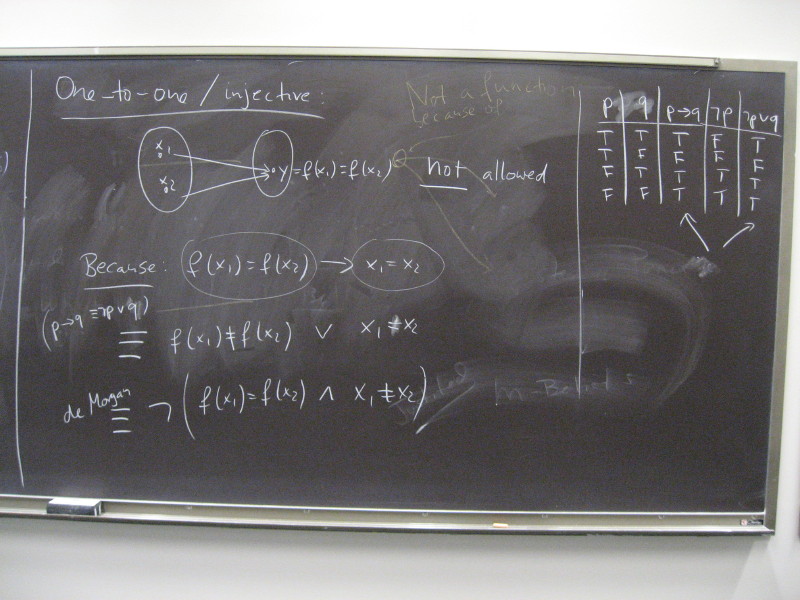 One-to-one / injective:
Not a function
because of
x₁
x₂
y = f(x₁) = f(x₂)
not allowed
Because: f(x₁) = f(x₂) → x₁ = x₂
(p→q ≡ ¬p∨q)
≡ f(x₁) ≠ f(x₂) ∨ x₁ = x₂
de Morgan
≡ ¬(f(x₁) = f(x₂) ∧ x₁ ≠ x₂)
p q p→q ¬p ¬p∨q
T T T F T
T F F F F
F T T T T
F F T T T